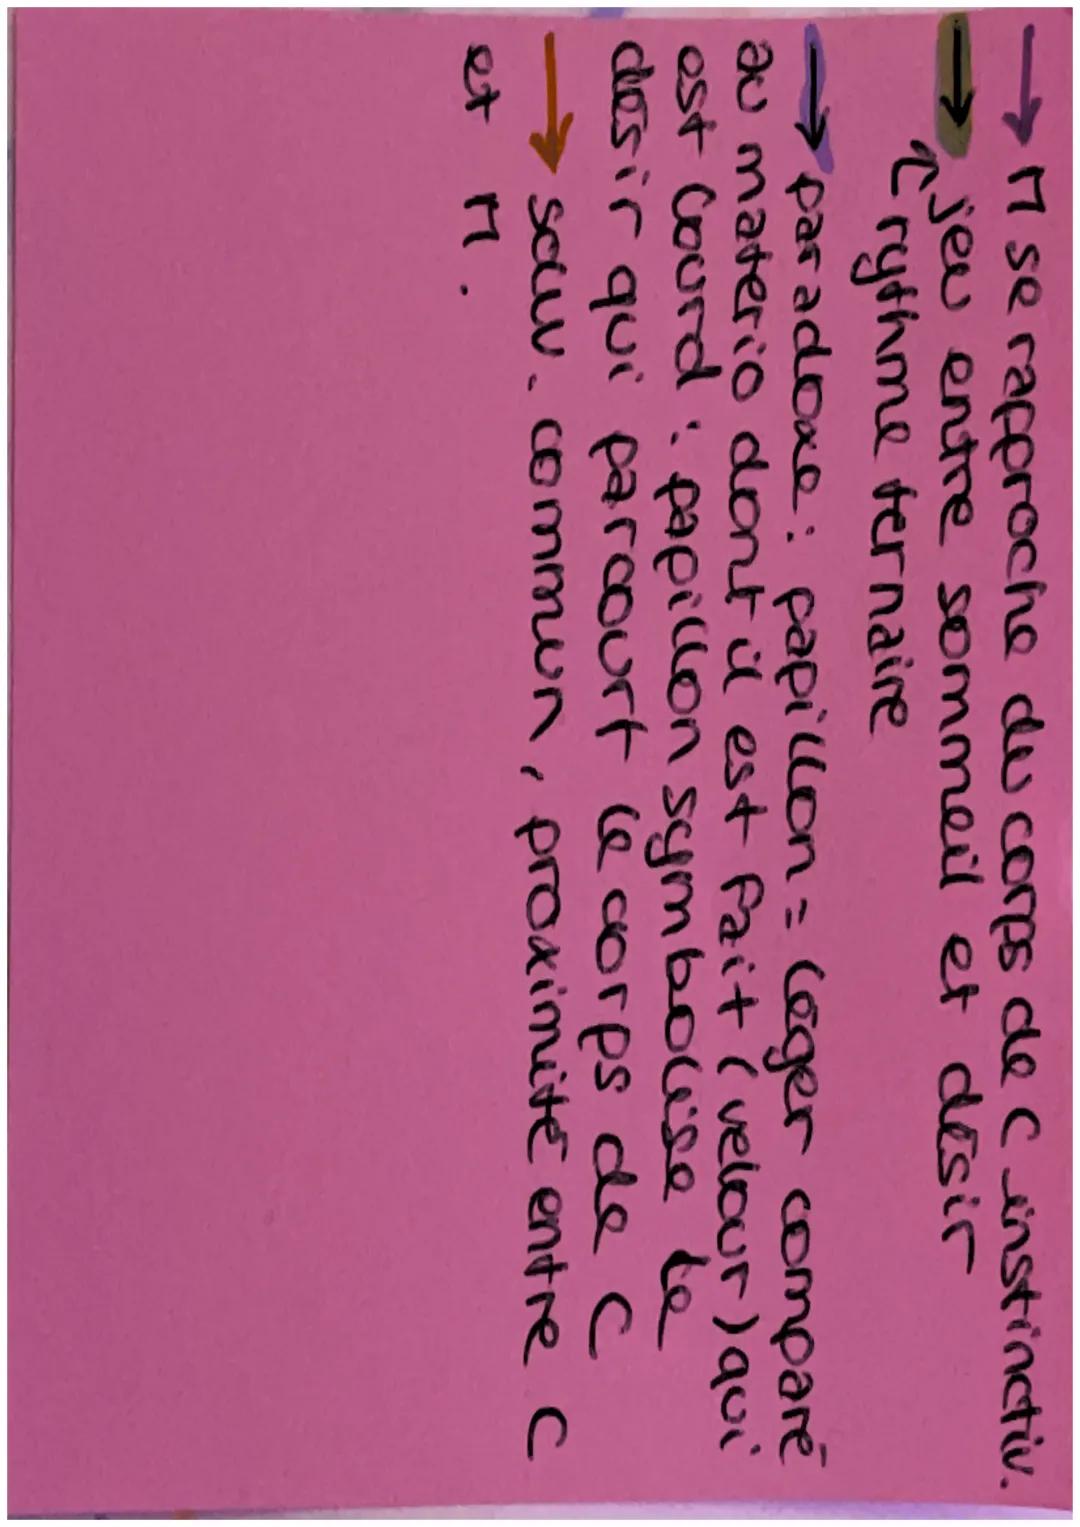 → M se rapproche du corps de C instinctiv.
→ jeu entre sommeil et désir
↑ rythme ternaire
→ paradoxe : papillon = léger comparé
au materio dont il est fait (velour) qui
est lourd : papillon symbolise le
désir qui parcourt le corps de C
→ souv. commun, proximité entre C
et M.